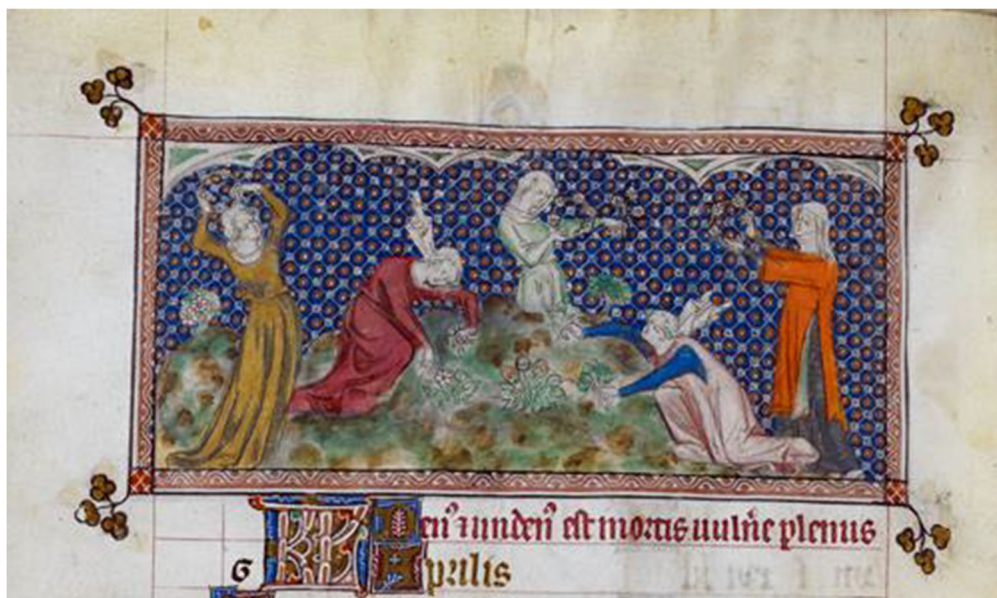 KL Den᾽ ⁊ unden᾽ est mortis uuln᾽e plenus
G Aprilis